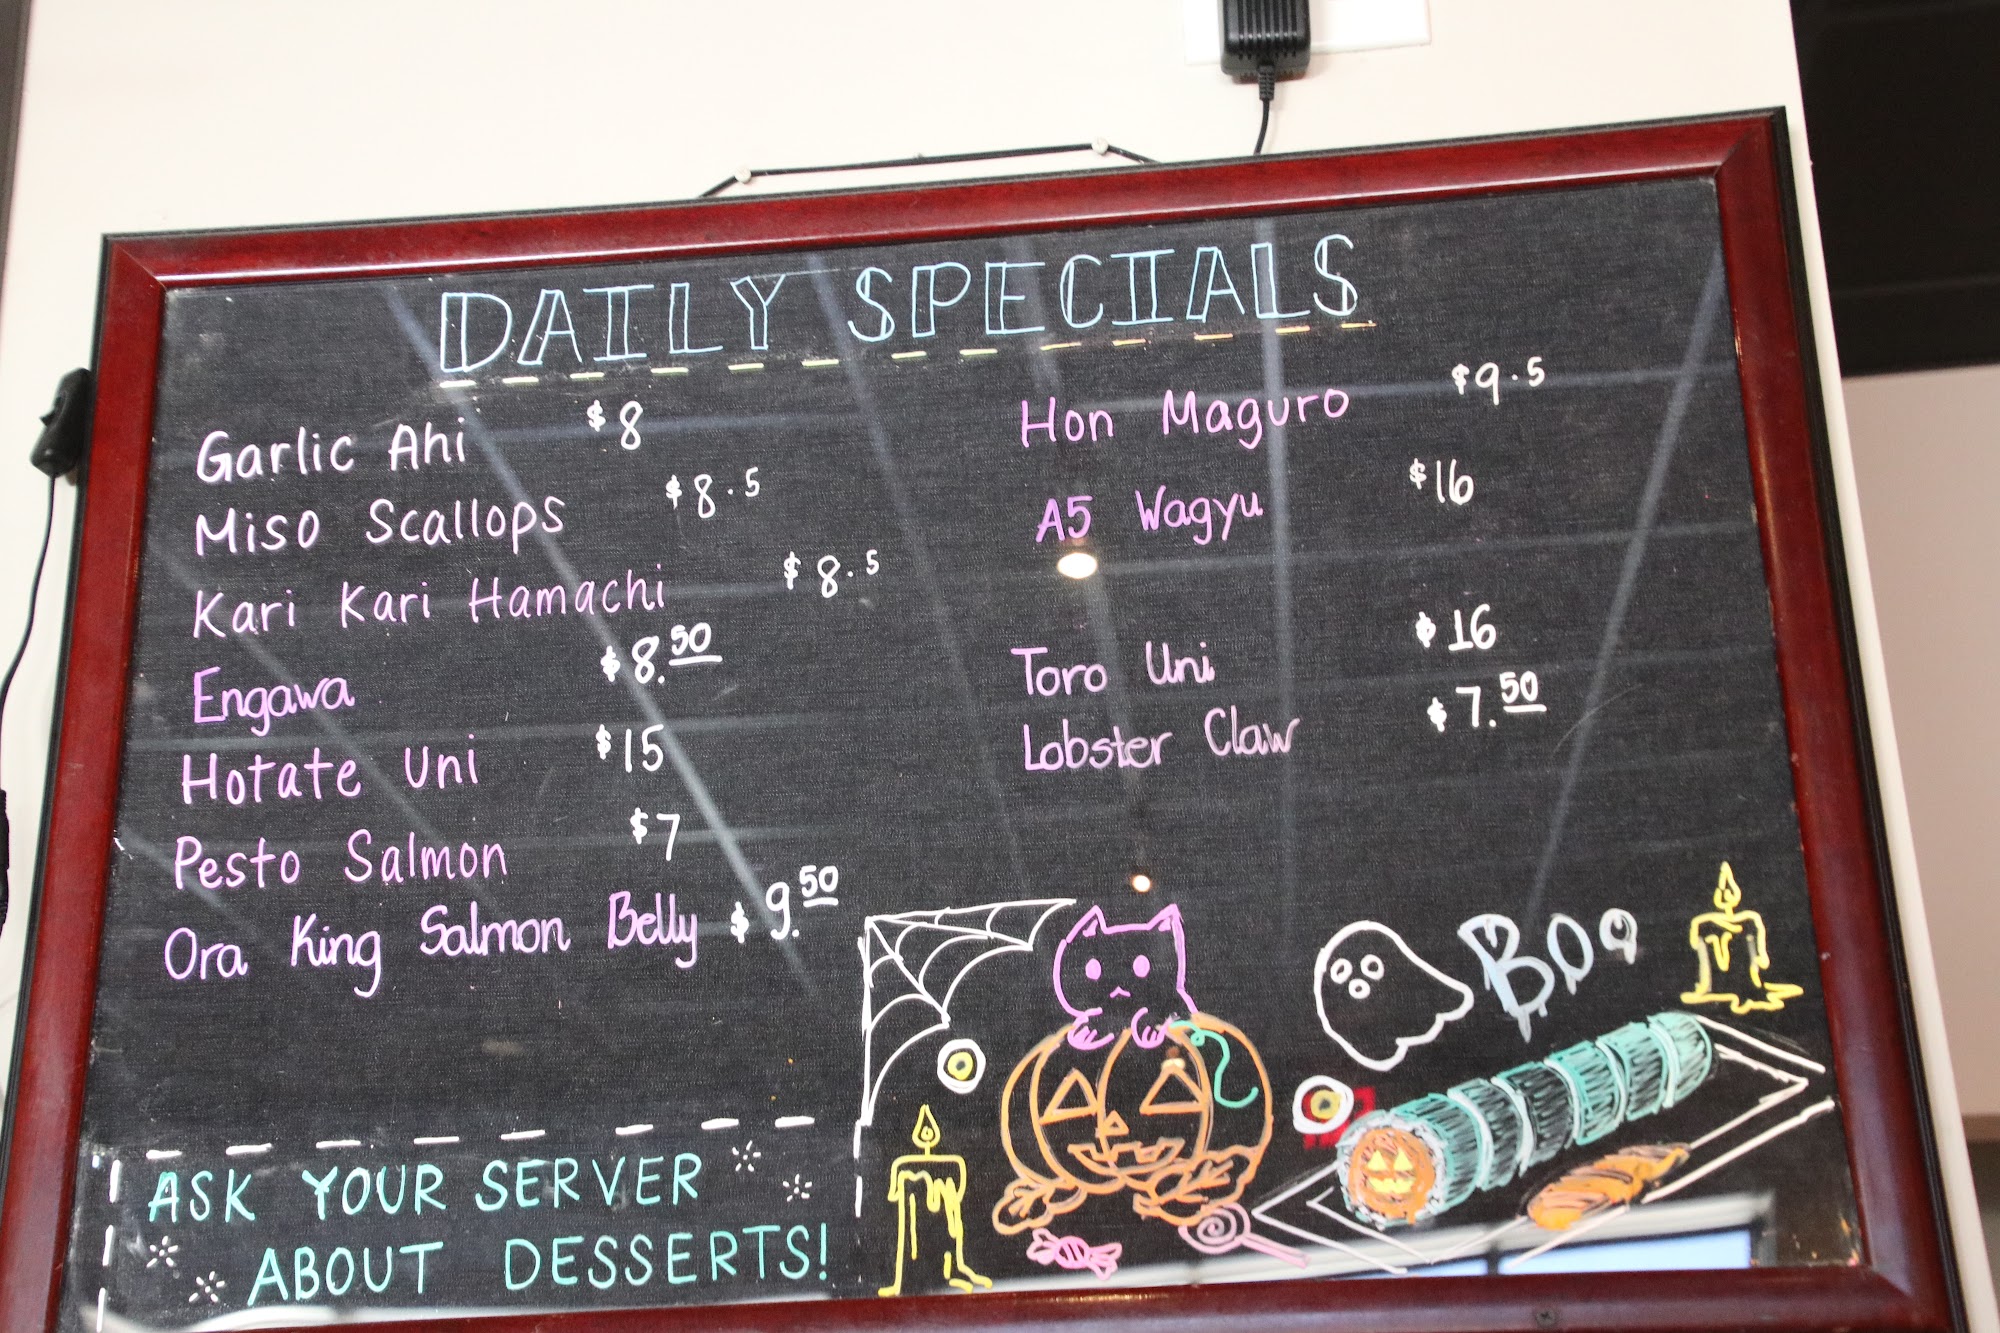 DAILY SPECIALS
Garlic Ahi $8
Miso Scallops $8.5
Kari Kari Hamachi $8.5
Engawa $8.50
Hotate Uni $15
Pesto Salmon $7
Ora King Salmon Belly $9.50
Hon Maguro $9.5
A5 Wagyu $16
Toro Uni $16
Lobster Claw $7.50
BOO
ASK YOUR SERVER
ABOUT DESSERTS!